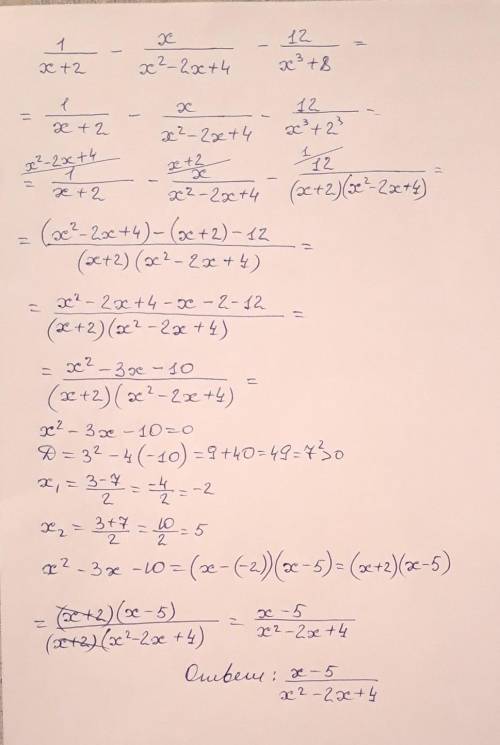 1/(x+2) - x/(x²-2x+4) - 12/(x³+8) =
= 1/(x+2) - x/(x²-2x+4) - 12/(x³+2³) =
x²-2x+4 / = 1/(x+2) - x+2 / x/(x²-2x+4) - 1 / 12/((x+2)(x²-2x+4)) =
= ((x²-2x+4)-(x+2)-12)/((x+2)(x²-2x+4)) =
= (x²-2x+4-x-2-12)/((x+2)(x²-2x+4)) =
= (x²-3x-10)/((x+2)(x²-2x+4)) =
x²-3x-10=0
D=3²-4(-10)=9+40=49=7²>0
x₁ = (3-7)/2 = -4/2 = -2
x₂ = (3+7)/2 = 10/2 = 5
x²-3x-10=(x-(-2))(x-5)=(x+2)(x-5)
= ((x+2)(x-5))/((x+2)(x²-2x+4)) = (x-5)/(x²-2x+4)
Ответ: (x-5)/(x²-2x+4)